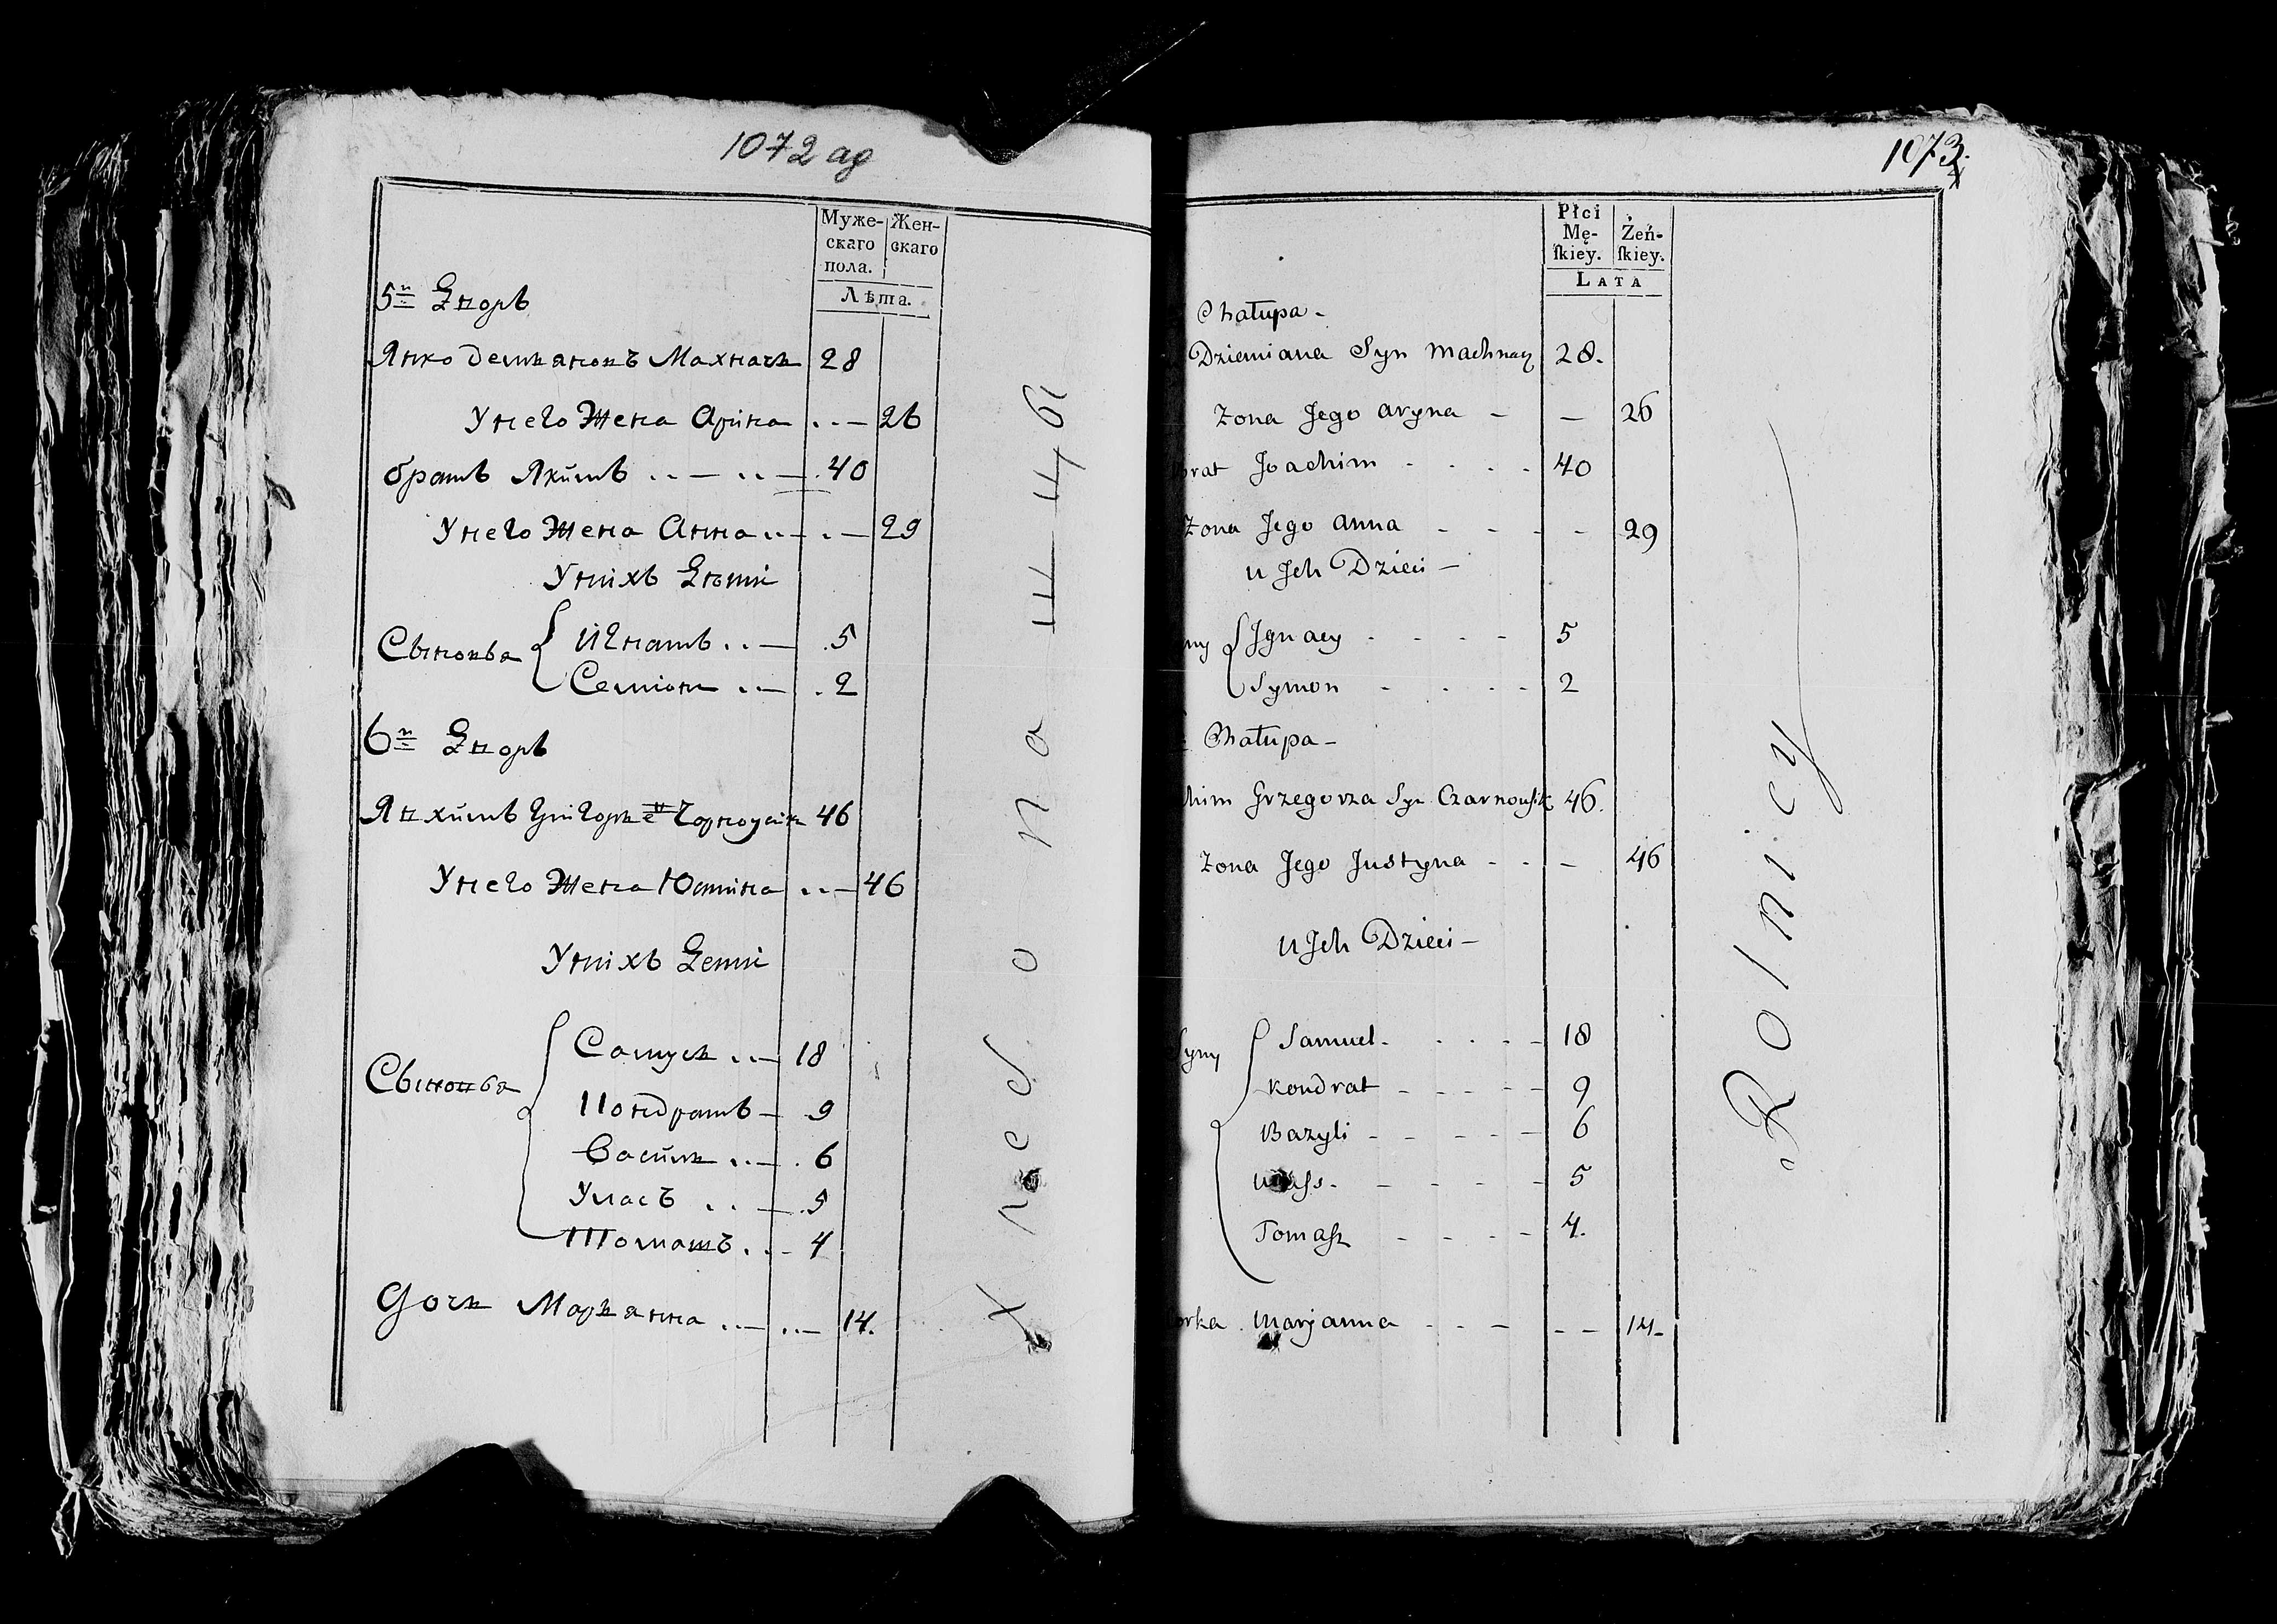 1072 ад
Муже-
скаго
пола.
Жен-
скаго
Лѣта.
5й Дворъ
Янко Демьяновъ Махначь 28
У него Жена Арина 26
братъ Якимъ 40
У него Жена Анна 29
У нихъ Дѣти
Сыновья
Игнатъ 5
Семіон 2
6й Дворъ
Яхимъ Григорьев Чорноусик 46
У него Жена Юстина 46
У нихъ Дети
Сыновья
Самусь 18
Кондратъ 9
Василь 6
Уласъ 5
Томашъ 4
Дочь Марьянна 14.
Хлебопашцы
1073
Płci
Mę-
ſkiey.
Żeń-
ſkiey.
LATA
Chałupa -
Dziemiana Syn Machnacz 28.
Zona Jego Aryna - - 26
brat Joachim - - - - 40
Zona Jego Anna - - - - 29
u Jch Dzieci -
ny
Jgnacy - - - - 5
Symon - - - - 2
Chałupa -
chim Grzegorza Syn Czarnousik 46.
Zona Jego Justyna - - - - 46
u Jch Dzieci -
Syny
Samuel - - - - 18
Kondrat - - - - - 9
Bazyli - - - - - 6
5
Tomasz - - - - 4.
orka Marjanna - - - - - 14-
Rolnicy